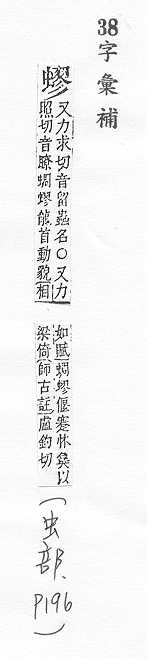 38字彙補
蟉
又力求切音留蟲名〇又力
照切音瞭蜩蟉龍首動貌相
如賦蜩蟉偃蹇怵㚟以
梁倚師古註盧釣切
(虫部、P196)